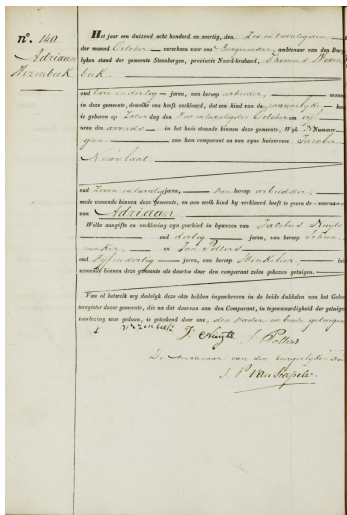 N.º 140
Adriaan
Hezenbeek
Het jaar een duizend acht honderd en veertig, den Zes en twintigsten
der maand October verscheen voor ons Burgemeester, ambtenaar van den Bur-
lijken stand der gemeente Steenbergen, provincie Noord-braband,
beek
oud twee en dertig jaren, van beroep arbeider,
in deze gemeente, dewelke ons heeft verklaard, dat een kind van de mannelijke
is geboren op Zater dag den Vier en twintigsten October om vijf
uren des avonds in het huis staande binnen deze gemeente, Wijk Nummer
van hem comparant en een zijne huisvrouw Jacoba
Nieuwlaat
oud Zeven en twintig jaren, van beroep arbeidster,
mede wonende binnen deze gemeente, en aan welk kind hij verklaard heeft te geven de voornaam
van Adriaan
Welke aangifte en verklaring zijn geschied in bijwezen van Jacobus Nuijts
oud dertig jaren, van beroep Schoen
maker, en Jan Potters
oud Vijf en dertig jaren, van beroep Winkelier,
wonende binnen deze gemeente als daartoe door den comparant zelve gekozen getuigen.
Van al hetwelk wij dadelijk deze akte hebben ingeschreven in de beide dubbelen van het Geboor
teregister dezer gemeente, die na dat daarvan aan den Comparant, in tegenwoordigheid der getuigen
voorlezing was gedaan, is geteekend door ons, den Vader en beide getuigen
J. Nuijts J. Potters
De Ambtenaar van den burgerlijken